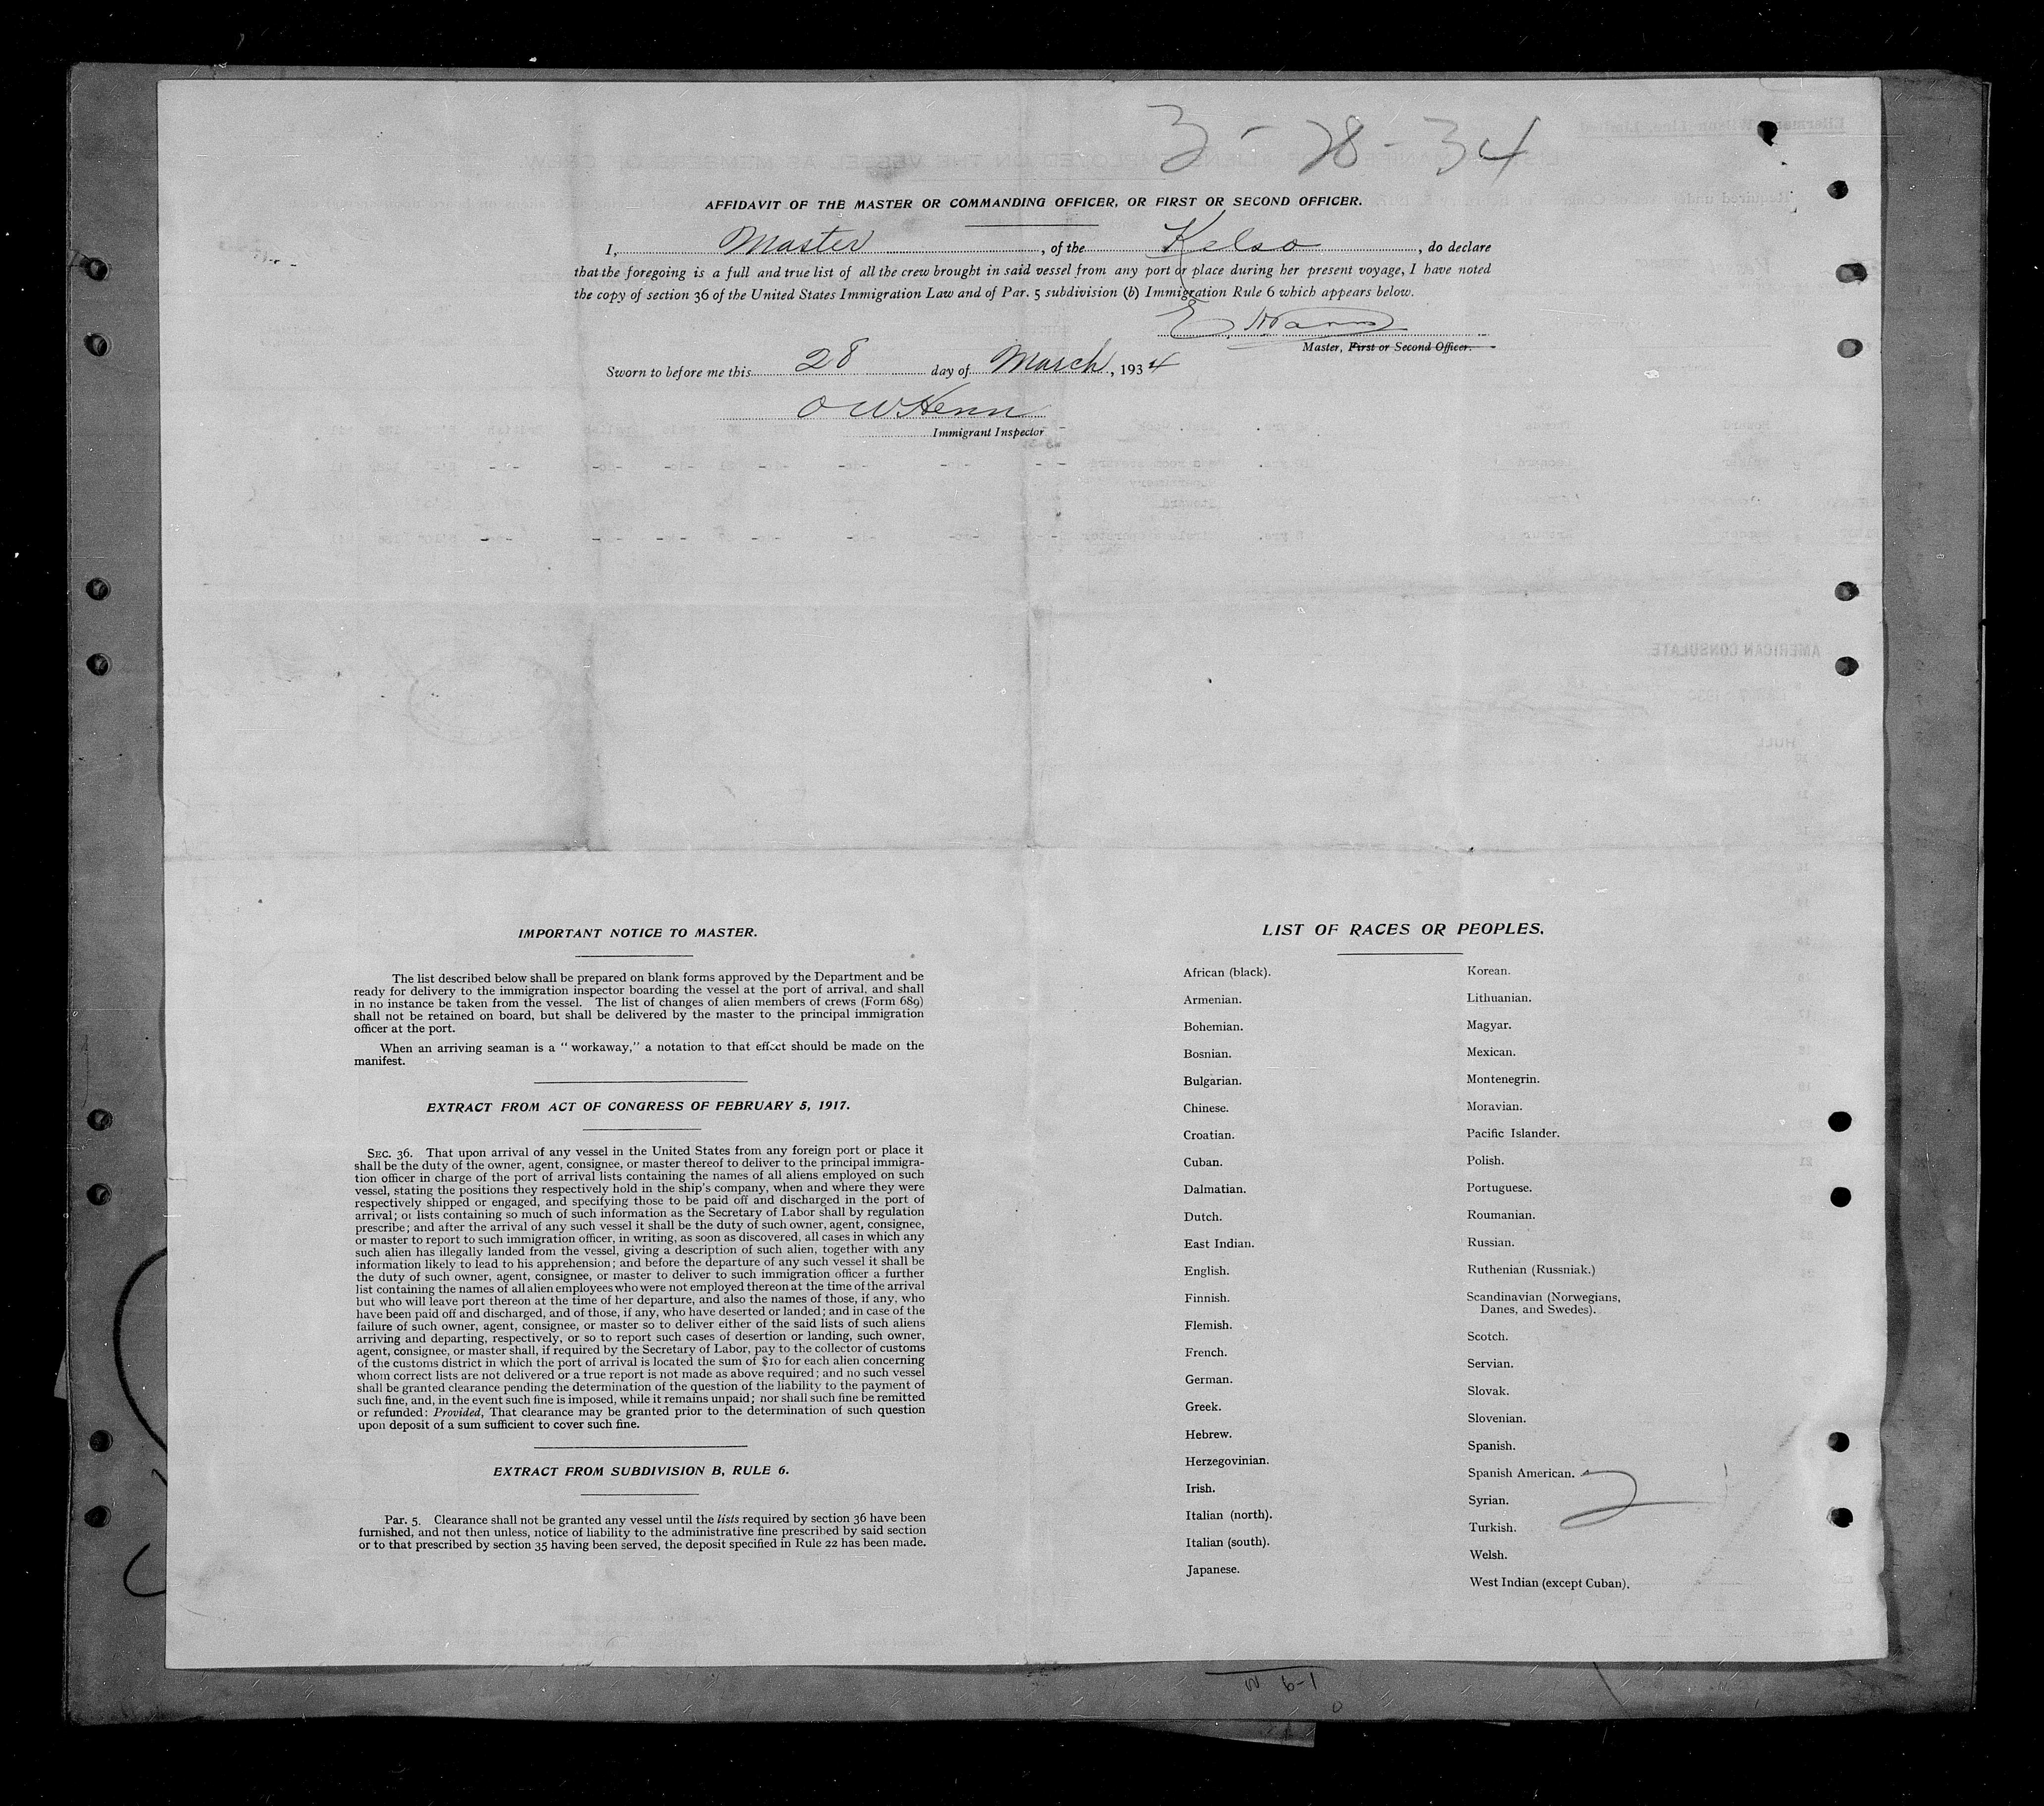 3-28-34
AFFIDAVIT OF THE MASTER OR COMMANDING OFFICER, OR FIRST OR SECOND OFFICER.
I, Master, of the Kelso, do declare
that the foregoing is a full and true list of all the crew brought in said vessel from any port or place during her present voyage, I have noted
the copy of section 36 of the United States Immigration Law and of Par. 5 subdivision (b) Immigration Rule 6 which appears below.
Master, First or Second Officer.
Sworn to before me this 28 day of March, 1934
O W Henn
Immigrant Inspector
AMERICAN CONSULATE
HULL
IMPORTANT NOTICE TO MASTER.
The list described below shall be prepared on blank forms approved by the Department and be
ready for delivery to the immigration inspector boarding the vessel at the port of arrival, and shall
in no instance be taken from the vessel. The list of changes of alien members of crews (Form 689)
shall not be retained on board, but shall be delivered by the master to the principal immigration
officer at the port.
When an arriving seaman is a "workaway," a notation to that effect should be made on the
manifest.
EXTRACT FROM ACT OF CONGRESS OF FEBRUARY 5, 1917.
SEC. 36. That upon arrival of any vessel in the United States from any foreign port or place it
shall be the duty of the owner, agent, consignee, or master thereof to deliver to the principal immigra-
tion officer in charge of the port of arrival lists containing the names of all aliens employed on such
vessel, stating the positions they respectively hold in the ship's company, when and where they were
respectively shipped or engaged, and specifying those to be paid off and discharged in the port of
arrival; or lists containing so much of such information as the Secretary of Labor shall by regulation
prescribe; and after the arrival of any such vessel it shall be the duty of such owner, agent, consignee,
or master to report to such immigration officer, in writing, as soon as discovered, all cases in which any
such alien has illegally landed from the vessel, giving a description of such alien, together with any
information likely to lead to his apprehension; and before the departure of any such vessel it shall be
the duty of such owner, agent, consignee, or master to deliver to such immigration officer a further
list containing the names of all alien employees who were not employed thereon at the time of the arrival
but who will leave port thereon at the time of her departure, and also the names of those, if any, who
have been paid off and discharged, and of those, if any, who have deserted or landed; and in case of the
failure of such owner, agent, consignee, or master so to deliver either of the said lists of such aliens
arriving and departing, respectively, or so to report such cases of desertion or landing, such owner,
agent, consignee, or master shall, if required by the Secretary of Labor, pay to the collector of customs
of the customs district in which the port of arrival is located the sum of $10 for each alien concerning
whom correct lists are not delivered or a true report is not made as above required; and no such vessel
shall be granted clearance pending the determination of the question of the liability to the payment of
such fine, and, in the event such fine is imposed, while it remains unpaid; nor shall such fine be remitted
or refunded: Provided, That clearance may be granted prior to the determination of such question
upon deposit of a sum sufficient to cover such fine.
EXTRACT FROM SUBDIVISION B, RULE 6.
Par. 5. Clearance shall not be granted any vessel until the lists required by section 36 have been
furnished, and not then unless, notice of liability to the administrative fine prescribed by said section
or to that prescribed by section 35 having been served, the deposit specified in Rule 22 has been made.
LIST OF RACES OR PEOPLES.
African (black).
Armenian.
Bohemian.
Bosnian.
Bulgarian.
Chinese.
Croatian.
Cuban.
Dalmatian.
Dutch.
East Indian.
English.
Finnish.
Flemish.
French.
German.
Greek.
Hebrew.
Herzegovinian.
Irish.
Italian (north).
Italian (south).
Japanese.
Korean.
Lithuanian.
Magyar.
Mexican.
Montenegrin.
Moravian.
Pacific Islander.
Polish.
Portuguese.
Roumanian.
Russian.
Ruthenian (Russniak.)
Scandinavian (Norwegians,
Danes, and Swedes).
Scotch.
Servian.
Slovak.
Slovenian.
Spanish.
Spanish American.
Syrian.
Turkish.
Welsh.
West Indian (except Cuban).